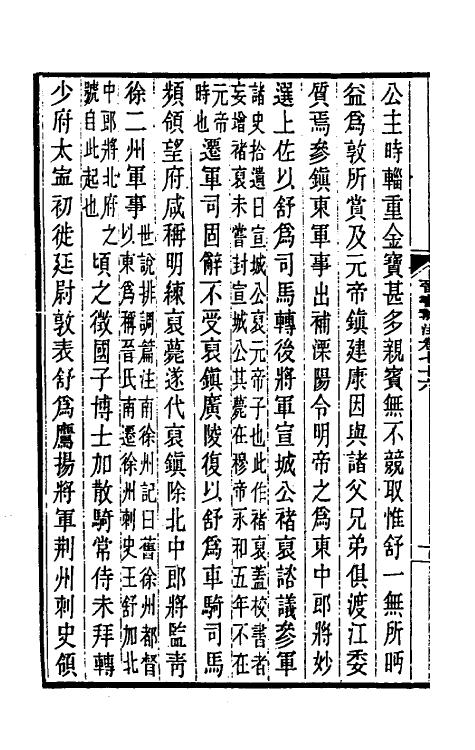 公主時輜重金寶甚多親賓無不競取惟舒一無所眄
益爲敦所賞及元帝鎮建康因與諸父兄弟俱渡江委
質焉參鎮東軍事出補溧陽令明帝之爲東中郎將妙
選上佐以舒爲司馬轉後將軍宣城公褚裒諮議參軍
諸史拾遺曰宣城公裒元帝子也此作褚裒蓋校書者
妄增褚裒未嘗封宣城公其薨在穆帝永和五年不在
元帝
時也
遷軍司固辭不受裒鎮廣陵復以舒爲車騎司馬
頻領望府咸稱明練裒薨遂代裒鎮除北中郎將監青
徐二州軍事
世說排調篇注南徐州記曰舊徐州都督
以東爲稱晉氏南遷徐州刺史王舒加北
中郎將北府之
號自此起也
頃之徵國子博士加散騎常侍未拜轉
少府太宰初徙廷尉敦表舒爲鷹揚將軍荆州刺史領
晉書斠注卷七十六